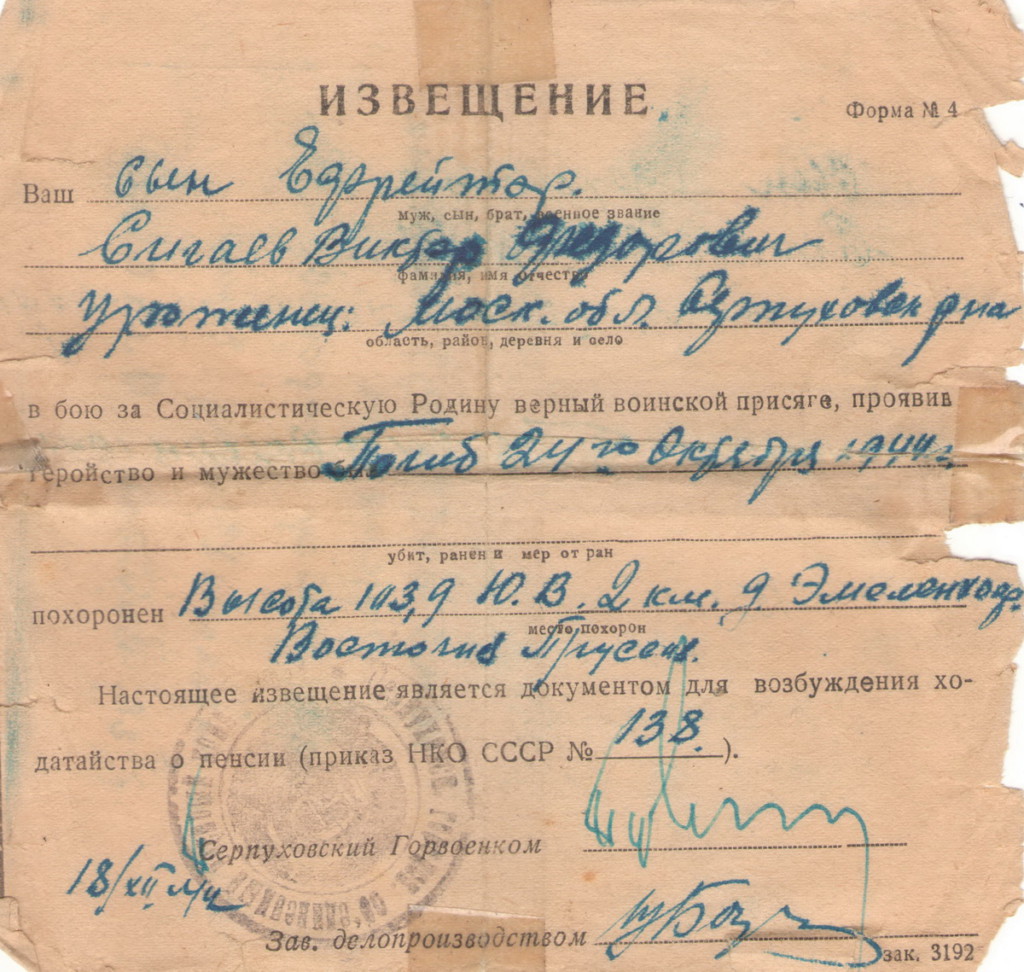 ИЗВЕЩЕНИЕ
Форма № 4
Ваш сын Ефрейтор.
муж, сын, брат, военное звание
Сигаев Виктор Федорович
фамилия, имя отчество
уроженец: Моск. обл. Серпуховск р-на
область, район, деревня и село
в бою за Социалистическую Родину верный воинской присяге, проявив
геройство и мужество Погиб 24го Октября 1944 г.
убит, ранен и мер от ран
похоронен Высота 103,9 Ю.В. 2 км. д.
место похорон
Восточная Пруссия.
Настоящее извещение является документом для возбуждения хо-
датайства о пенсии (приказ НКО СССР № 138.).
Серпуховский Горвоенком
18/XII
Зав. делопроизводством
зак. 3192